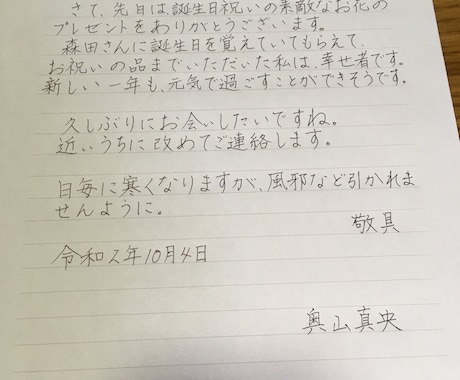 さて、先日は誕生日祝いの素敵なお花の
プレゼントをありがとうございます。
森田さんに誕生日を覚えていてもらえて、
お祝いの品までいただいた私は、幸せ者です。
新しい一年も、元気で過ごすことができそうです。
久しぶりにお会いしたいですね。
近いうちに改めてご連絡します。
日毎に寒くなりますが、風邪など引かれま
せんように。
敬具
令和2年10月4日
奥山真央